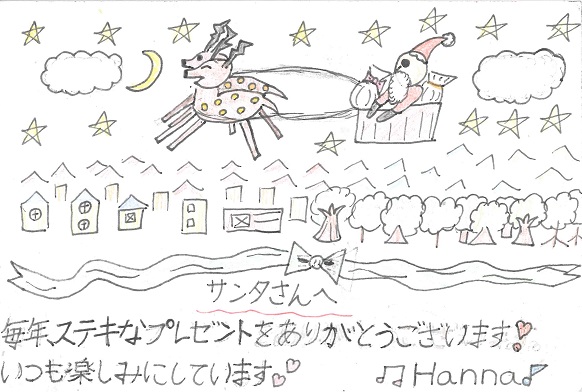 サンタさんへ
毎年、ステキなプレゼントをありがとうございます!
いつも楽しみにしています。
Hanna